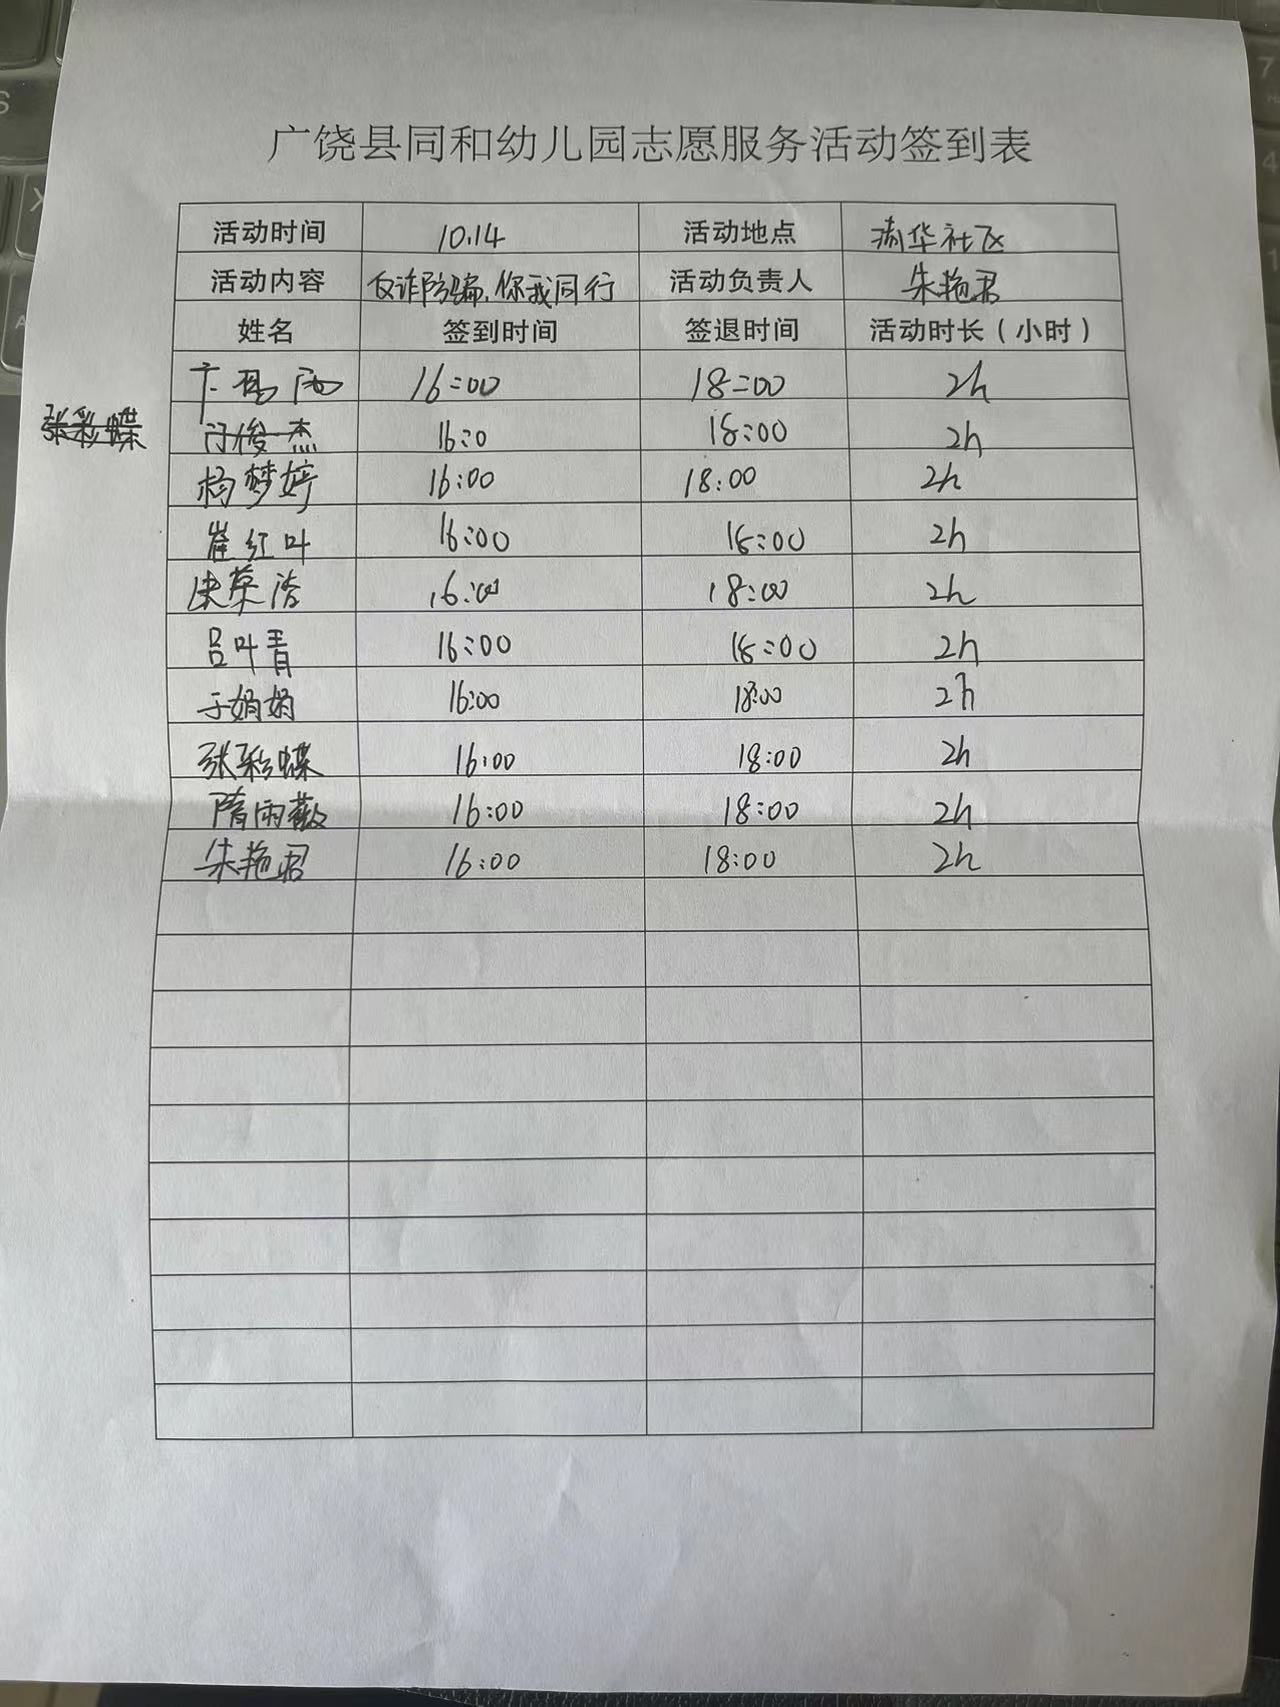 广饶县同和幼儿园志愿服务活动签到表
活动时间 10.14 活动地点 清华社区
活动内容 反诈防骗,你我同行 活动负责人 朱艳君
姓名 签到时间 签退时间 活动时长（小时）
16:00 18:00 2h
张彩蝶 闫俊杰 16:0 18:00 2h
杨梦婷 16:00 18:00 2h
崔红叶 16:00 18:00 2h
16:00 18:00 2h
吕叶青 16:00 18:00 2h
于娟娟 16:00 18:00 2h
张彩蝶 16:00 18:00 2h
隋雨薇 16:00 18:00 2h
朱艳君 16:00 18:00 2h